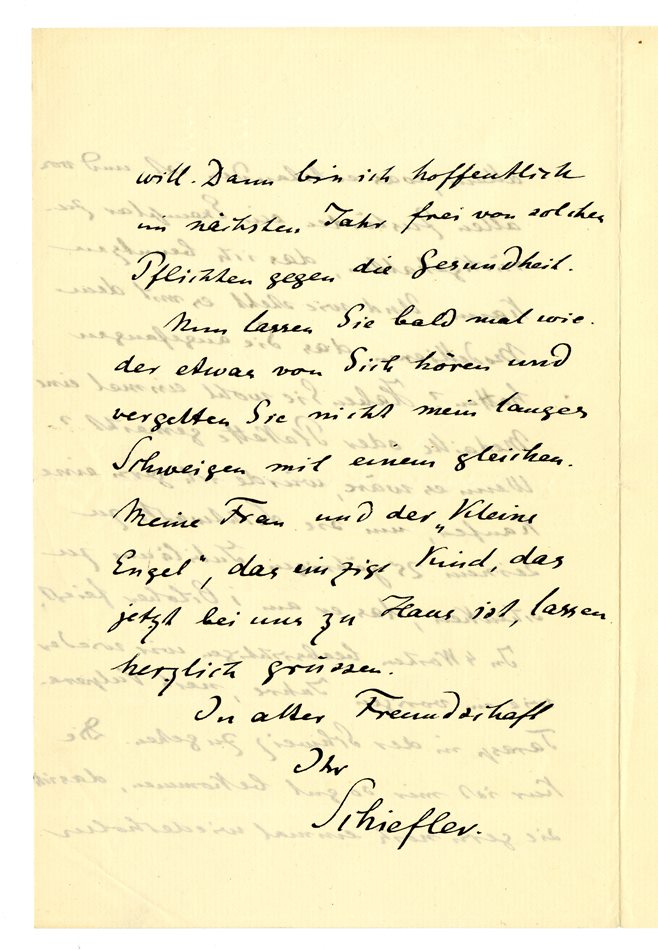 will. Dann bin ich hoffentlich
im nächsten Jahr frei von solchen
Pflichten gegen die Gesundheit.
Nun lassen Sie bald mal wie-
der etwas von Sich hören und
vergelten Sie nicht mein langes
Schweigen mit einem gleichen.
Meine Frau und der „Kleine
Engel“, das einzige Kind, das
jetzt bei uns zu Haus ist, lassen
herzlich grüssen.
In alter Freundschaft
Ihr
Schiefler.